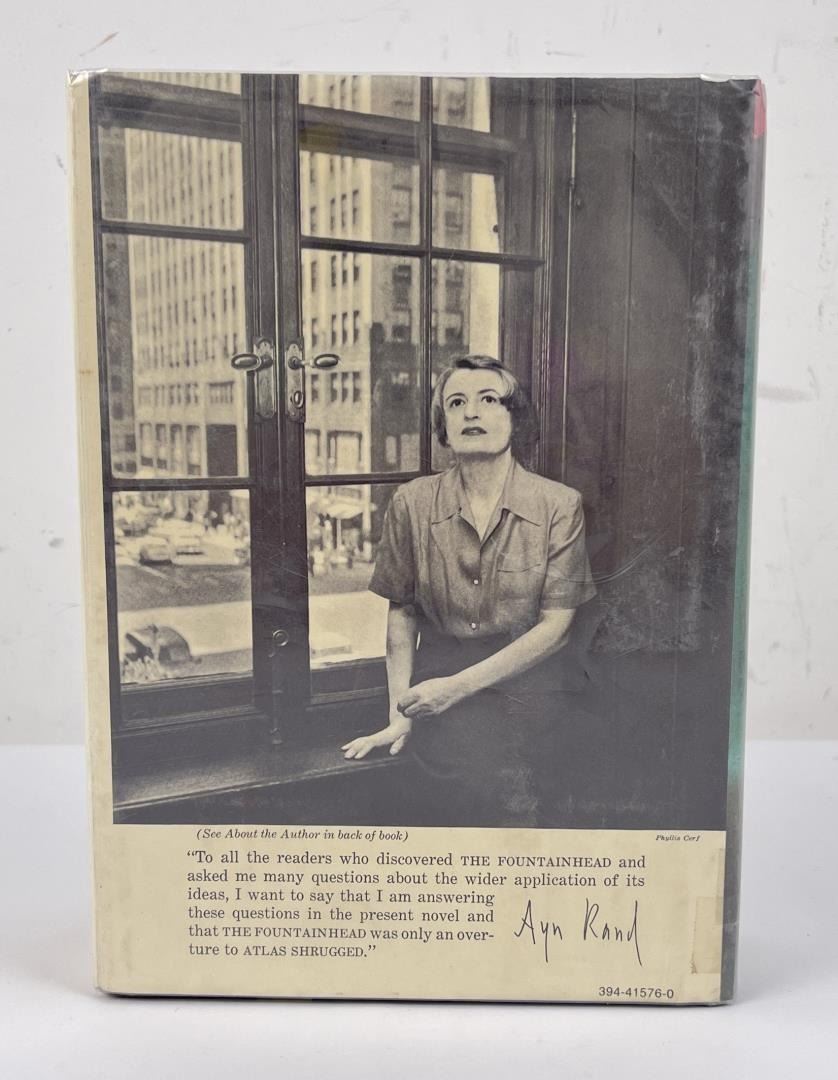 (See About the Author in back of book)
Phyllis Cerf
“To all the readers who discovered THE FOUNTAINHEAD and
asked me many questions about the wider application of its
ideas, I want to say that I am answering
these questions in the present novel and
that THE FOUNTAINHEAD was only an over-
ture to ATLAS SHRUGGED.”
Ayn Rand
394-41576-0